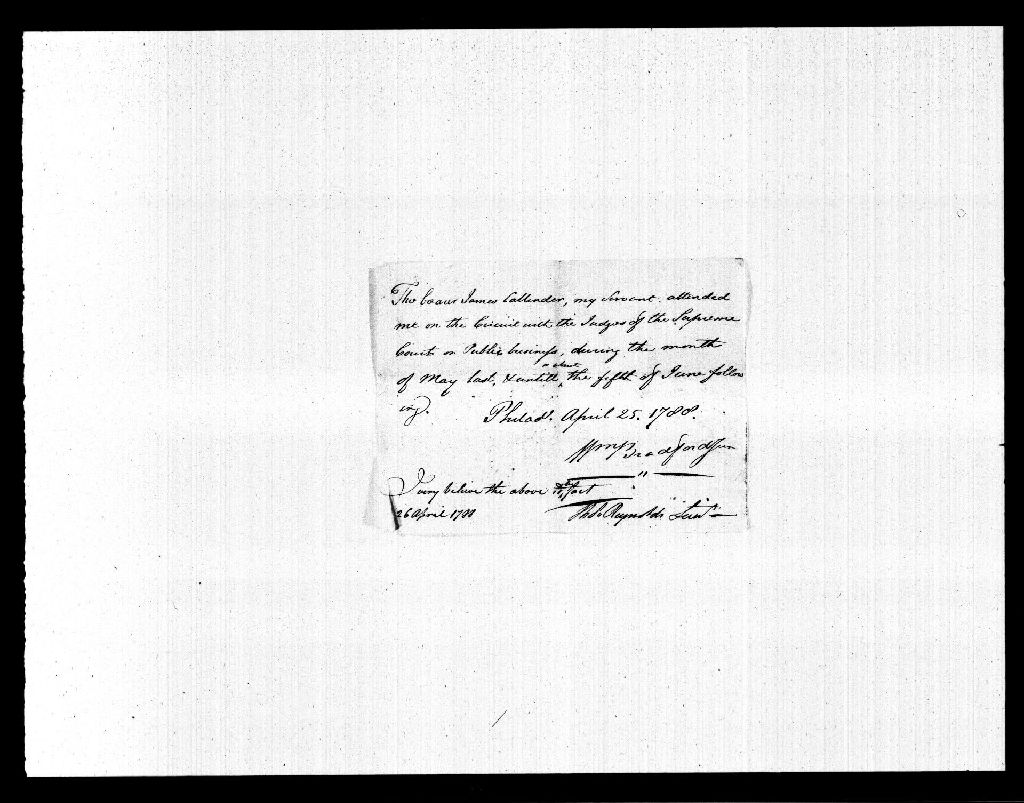 The bearer James Callender, my Servant attended
me on the Circuit with the Judges of the Supreme
Court on Public business, during the month
of May last, & untill ^ or about the fifth of June follow
ing. Philada. April 25. 1788.
Wm Bradford Jun
I very believe the above fact
26 April 1788 Reynolds